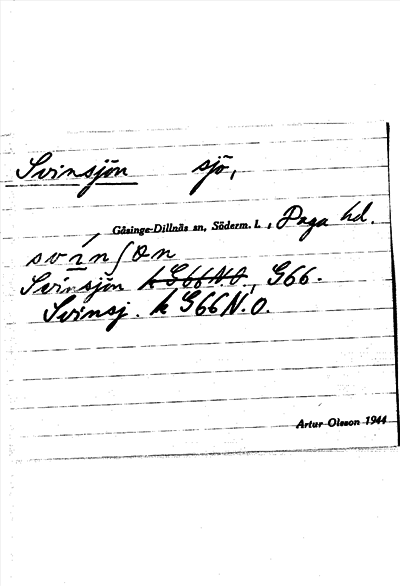 Svinsjön sjö,
Gåsinge-Dillnäs sn, Söderm. l., Daga hd.
Svinsjön k G66N.O., G66.
Svinsj. k G66N.O.
Artur Olsson 1944